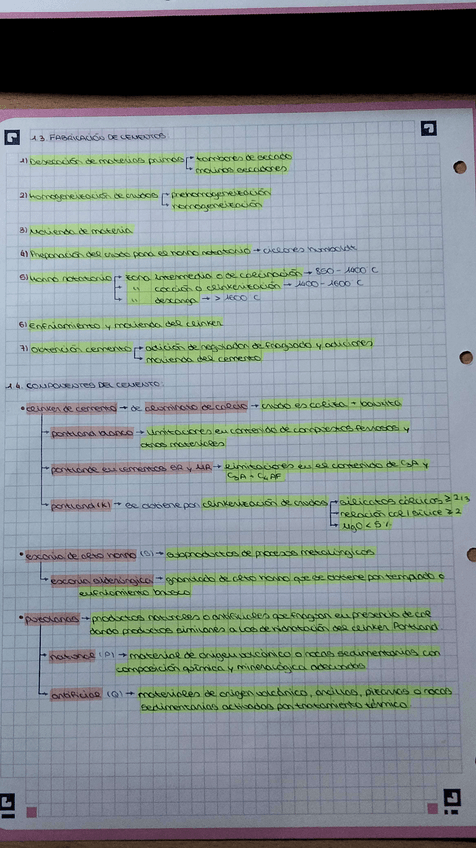 1.3. FABRICACIÓN DE CEMENTOS
1) Desecación de materias primas → tambores de secado
→ molinos secadores
2) Homogeneización de crudos → prehomogeneización
→ homogeneización
3) Molienda de materia
4) Preparación del crudo para el horno rotatorio → ciclones
5) Horno rotatorio → zona intermedia o de calcinación → 850 - 1400 C
→ " cocción o clinkerización → 1400 - 1600 C
→ " descarga → > 1600 C
6) Enfriamiento y molienda del clinker
7) Obtención cemento → adición de regulador de fraguado y adiciones
→ molienda del cemento
1.4. COMPONENTES DEL CEMENTO
• clinker de cemento → de aluminato de calcio → crudo es caliza + bauxita
→ portland blanco → limitaciones en contenido de compuestos ferrosos y
otros materiales
→ portland en cementos SR y MR → limitaciones en el contenido de C3A y
C3A + C4AF
→ portland (K) → se obtiene por clinkerización de crudos → silicatos cálcicos ≥ 2/3
→ relación cal / sílice ≥ 2
→ MgO < 5%
• escoria de alto horno (S) → subproductos de procesos metalúrgicos
→ escoria siderúrgica → granulado de alto horno que se obtiene por templado o
enfriamiento brusco
• puzolanas → productos naturales o artificiales que fraguan en presencia de cal
dando productos similares a los de hidratación del clinker Portland
→ natural (P) → material de origen volcánico o rocas sedimentarias con
composición química y mineralógica adecuadas
→ artificial (Q) → materiales de origen volcánico, arcillas, pizarras o rocas
sedimentarias activadas por tratamiento térmico